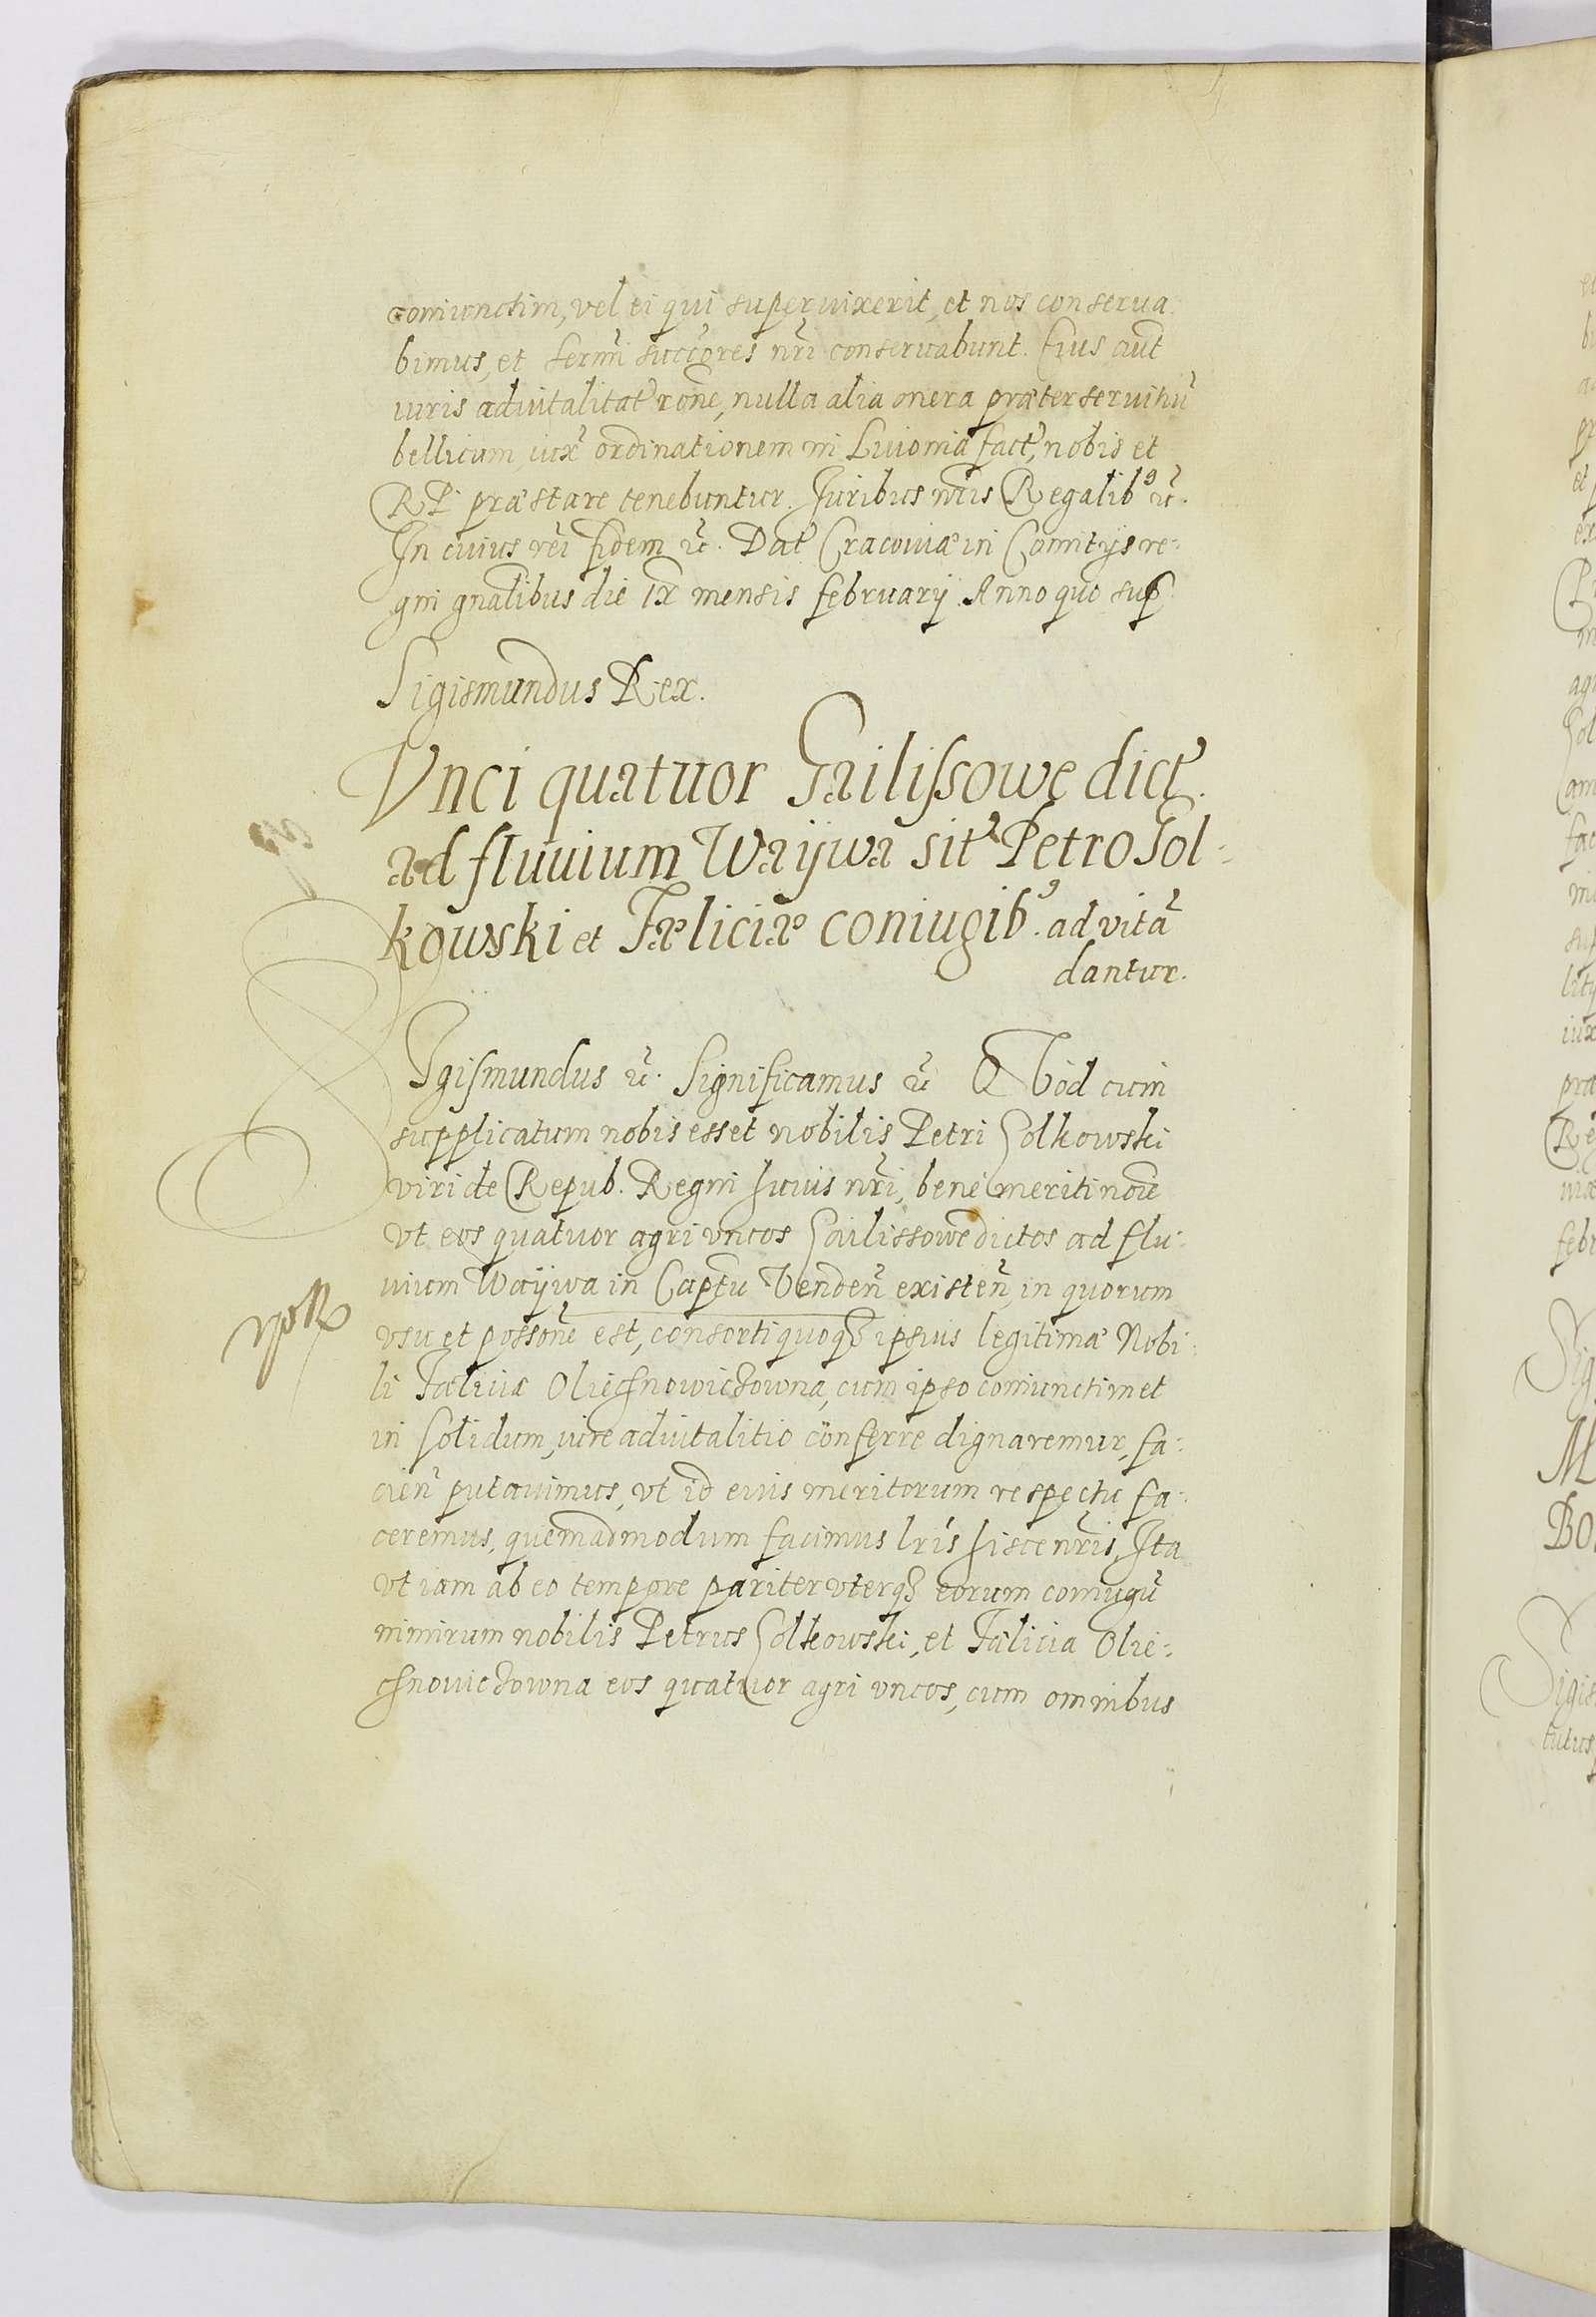 coniunctim, vel ei qui supervixerit, et nos conserva
bimus, et sermi succōres nr̃i conservabunt. Eius aut̃
iuris advitalitat̃ rōne, nulla alia onera præter servitiũ
bellicum, iux̃ ordinationem in Livonia fact̃, nobis et
RP. præstare tenebuntur. Iuribus nr̃is Regalib9 ~~c.
In cuius rei fidem ~~c. Dat̃ Cracoviæ in Comitijs re-
gni gnalibus die IX mensis februarij Anno quo sup̃
Sigismundus Rex.
Vnci quatuor Gailissowe dict̃.
ad fluuium Waijwa sit̃ Petro Sol-
kowski et Fæliciæ coniugib9. ad vitã
dantur.
SIgismundus ~~c. Significamus ~~c QVod cum
supplicatum nobis esset nobilis Petri Solkowski
viri de Repub. Regni huius nr̃i, bene meriti noĩe
vt eos quatuor agri vncos Gailissowe dictos ad flu-
uium Waijwa in Capt̃u Venden̄ existen̄, in quorum
vsu et possōne est, consorti quoq3 ipsius legitimæ Nobi-
li Fæliciæ Oliechnowiczowna, cum ipso coniunctim et
in solidum, iure advitalitio conferre dignaremur, fa-
cien̄ putavimus, vt id eius meritorum respectu fa-
ceremus, quemadmodum facimus lr̃is hisce nr̃is, Ita
vt iam ab eo tempore pariter vterq3 eorum coniugũ
nimirum nobilis Petrus Solkowski, et Fælicia Olie-
chnowiczowna eos quatuor agri vncos, cum omnibus